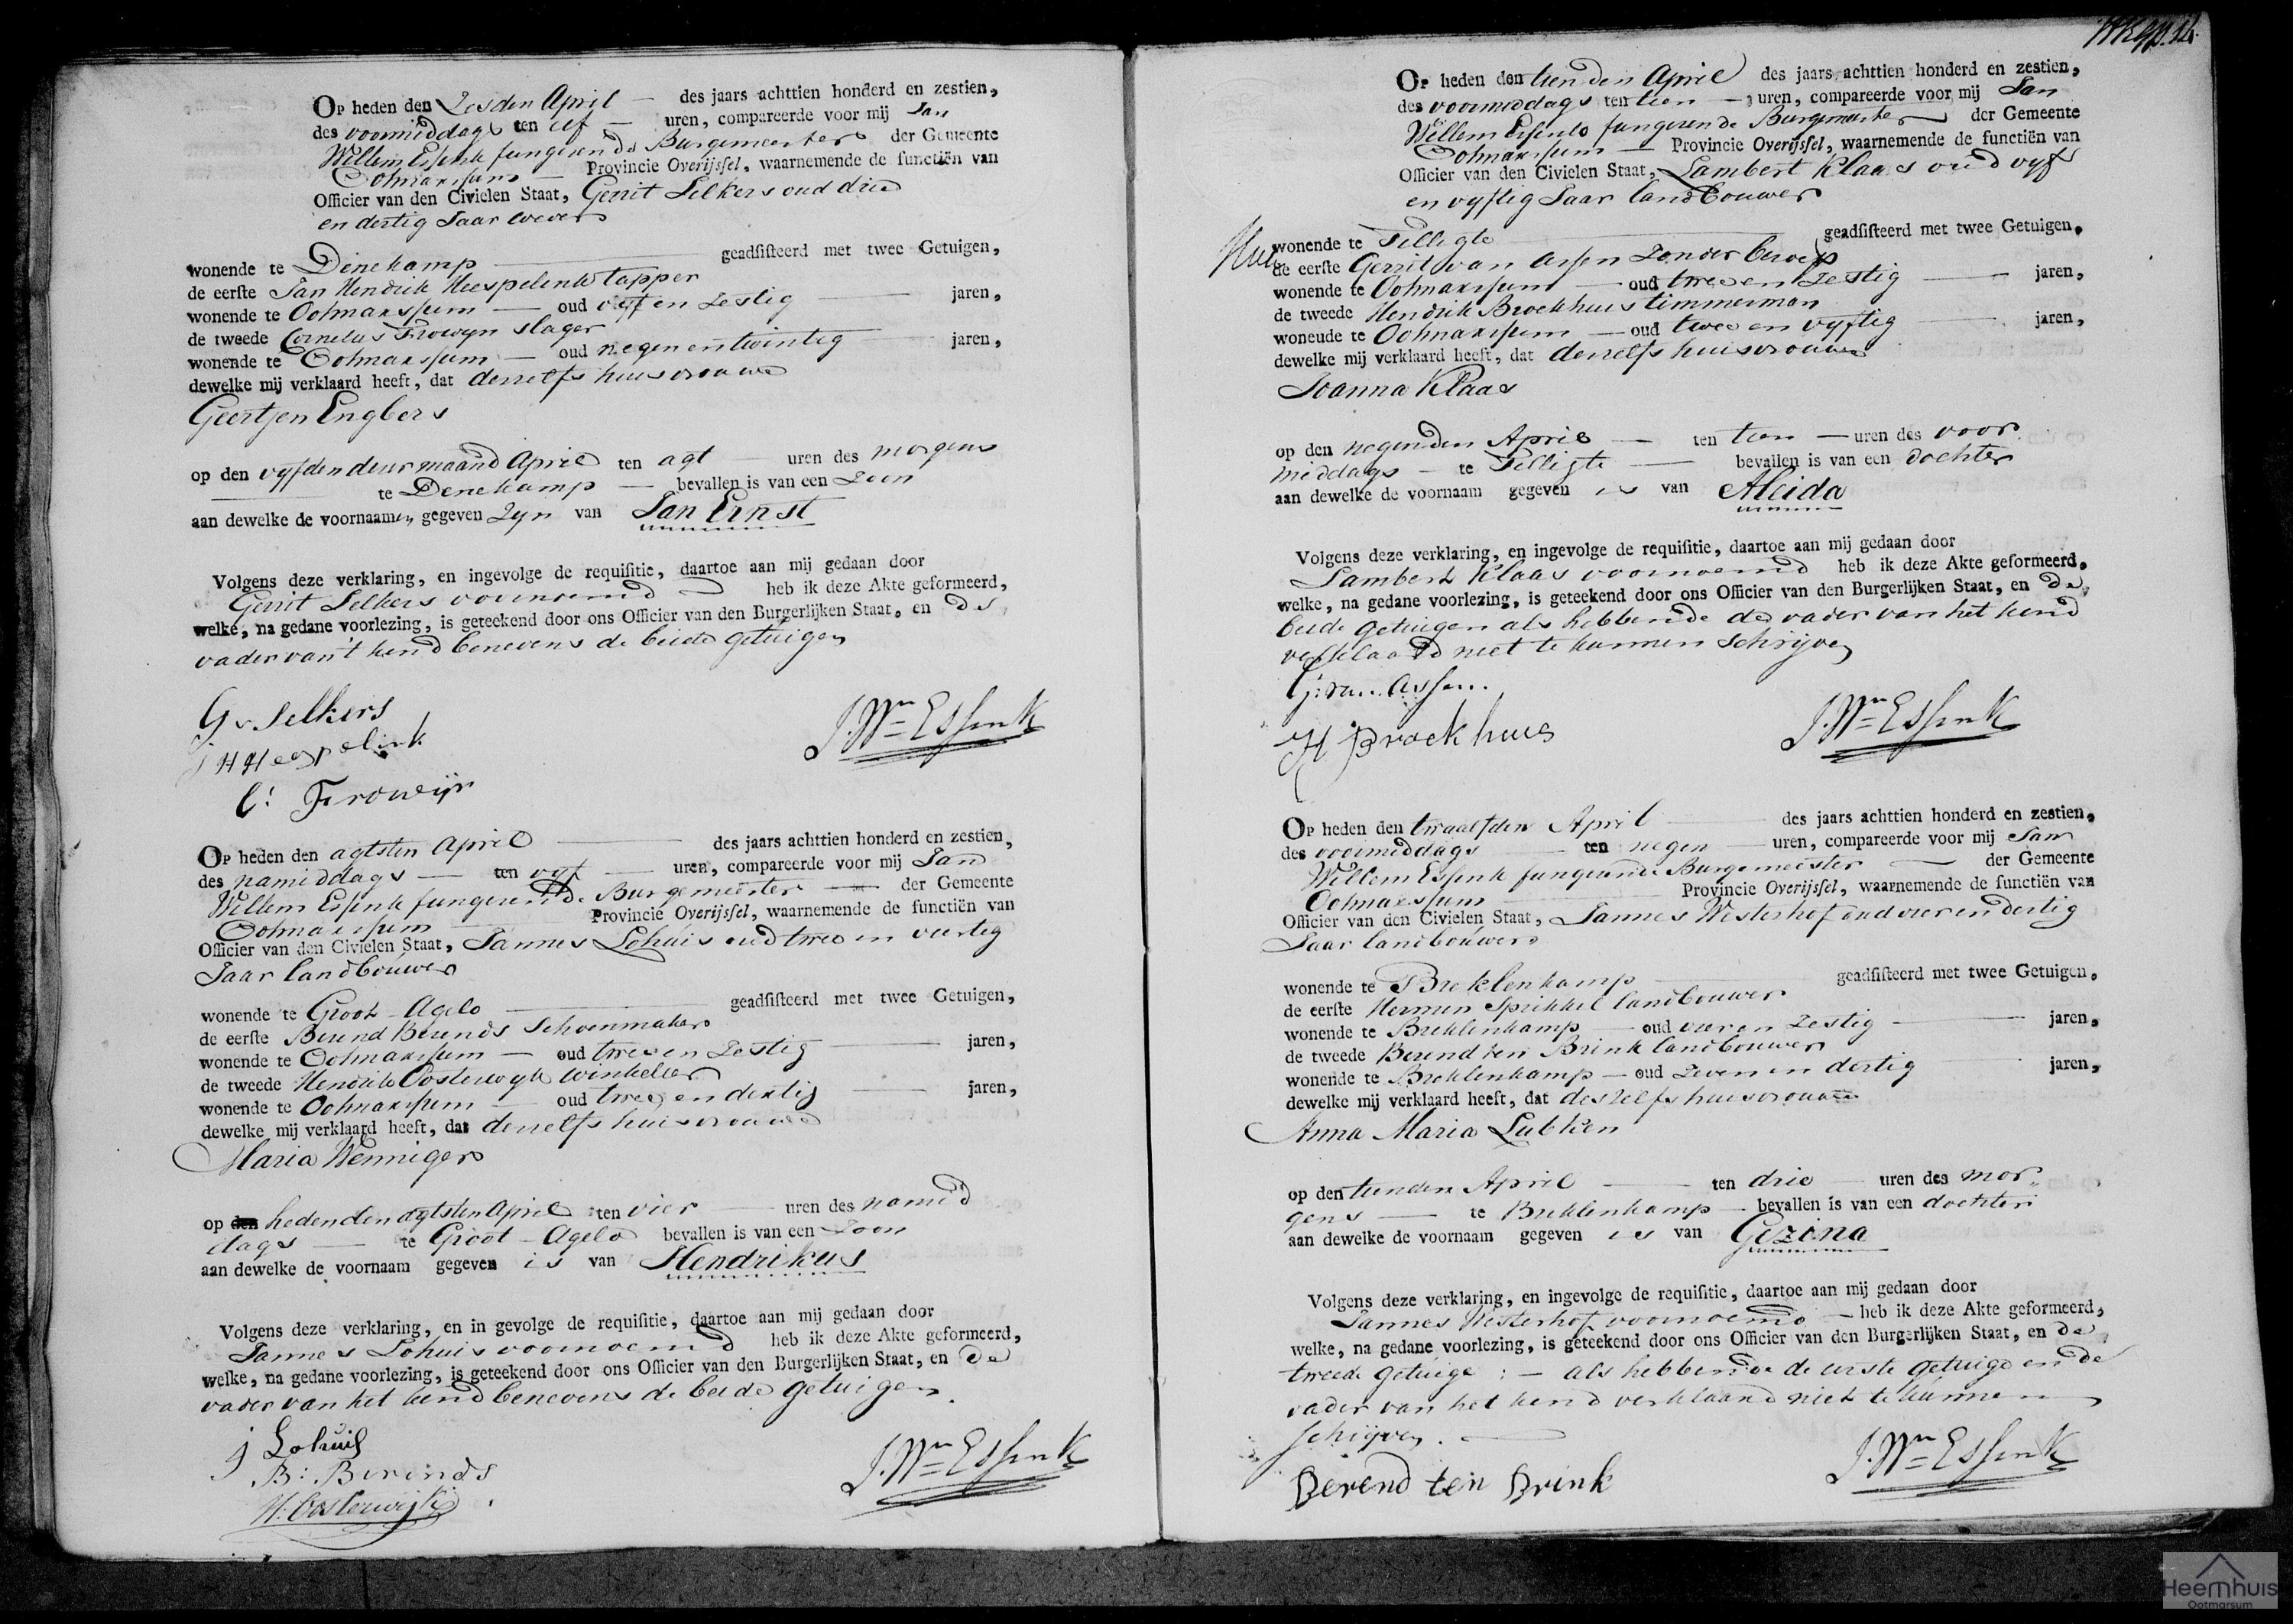 Op heden den Zesden April — des jaars achttien honderd en zestien,
des voormiddags ten elf — uren, compareerde voor mij Jan
Willem Essink fungerende Burgemeester der Gemeente
Ootmarssum — Provincie Overijssel, waarnemende de functiën van
Officier van den Civielen Staat, Gerrit Selkers oud drie
en dertig Jaar wever
wonende te Denekamp — geadsisteerd met twee Getuigen,
de eerste Jan Hendrik Heespelink tapper
wonende te Ootmarssum — oud vyf en Zestig — jaren,
de tweede Cornelus Frowyn slager
wonende te Ootmarssum — oud negen en twintig — jaren,
dewelke mij verklaard heeft, dat deszelfs huisvrouwe
Geertjen Engbers
op den vyfden deur maand April ten agt — uren des morgens
— te Denekamp — bevallen is van een Zoon
aan dewelke de voornaamen gegeven Zyn van Jan Ernst
Volgens deze verklaring, en ingevolge de requisitie, daartoe aan mij gedaan door
Gerrit Selkers voornoemd — heb ik deze Akte geformeerd,
welke, na gedane voorlezing, is geteekend door ons Officier van den Burgerlijken Staat, en de
vader van't kend benevens de beide getuigen
G. Selkers
J H Heespelink
J. Wm Essink
C: Froweijn
Op heden den agtsten April — des jaars achttien honderd en zestien,
des namiddags — ten vyf — uren, compareerde voor mij Jan
Willem Essink fungerende Burgemeester — der Gemeente
Ootmarssum Provincie Overijssel, waarnemende de functiën van
Officier van den Civielen Staat, Jannes Lohuis oud twee en veertig
Jaar landbouwer
wonende te Groot-Agelo — geadsisteerd met twee Getuigen,
de eerste Berend Berends Schoenmaker
wonende te Ootmarssum — oud twee en Zestig — jaren,
de tweede Hendrik Oosterwyk winkelier
wonende te Ootmarssum — oud twee en dertig — jaren,
dewelke mij verklaard heeft, dat deszelfs huisvrouwe
Maria Wennigers
op den heden den agtsten April ten vier — uren des namid
dags — te Groot-Agelo bevallen is van een Zoon
aan dewelke de voornaam gegeven is van Hendrikus
Volgens deze verklaring, en in gevolge de requisitie, daartoe aan mij gedaan door
Jannes Lohuis voornoemd heb ik deze Akte geformeerd,
welke, na gedane voorlezing, is geteekend door ons Officier van den Burgerlijken Staat, en de
vader van het kend benevens de beide getuigen.
j Lohuis
B: Berends
J. Wm Essink
H. Oosterwijk
Op heden den tienden April des jaars achttien honderd en zestien,
des voormiddags ten tien — uren, compareerde voor mij Jan
Willem Essink fungerende Burgemeester der Gemeente
Ootmarssum — Provincie Overijssel, waarnemende de functiën van
Officier van den Civielen Staat, Lambert Klaas oud vyf
en vyftig Jaar landbouwer
wonende te Tilligte — geadsisteerd met twee Getuigen,
de eerste Gerrit van Assen Zonder beroep
wonende te Ootmarssum — oud twee en Zestig — jaren,
de tweede Hendrik Broekhuis timmerman
woneude te Ootmarssum — oud twee en vyftig — jaren,
dewelke mij verklaard heeft, dat deszelfs huisvrouwe
Joanna Klaas
op den negenden April — ten tien — uren des voor
middags — te Tilligte — bevallen is van een dochter
aan dewelke de voornaam gegeven is van Aleida
Volgens deze verklaring, en ingevolge de requisitie, daartoe aan mij gedaan door
Lambert Klaas voornoemd heb ik deze Akte geformeerd,
welke, na gedane voorlezing, is geteekend door ons Officier van den Burgerlijken Staat, en de
beide getuigen als hebbende de vader van het kend
verklaard niet te kunnen schrijven
G: van Assen.
J. Wm Essink
H Broekhuis
Op heden den twaalfden April — des jaars achttien honderd en zestien,
des voormiddags — ten negen — uren, compareerde voor mij Jan
Willem Essink fungerende Burgemeester — der Gemeente
Ootmarssum — Provincie Overijssel, waarnemende de functiën van
Officier van den Civielen Staat, Jannes Westerhof oud vier en dertig
Jaar landbouwer
wonende te Breklenkamp — geadsisteerd met twee Getuigen,
de eerste Hermen Sprikkel landbouwer
wonende te Breklenkamp — oud vier en Zestig — jaren,
de tweede Berend ten Brink landbouwer
wonende te Breklenkamp — oud Zeven en dertig jaren,
dewelke mij verklaard heeft, dat deszelfs huisvrouwe
Anna Maria Lubken
op den tienden April — ten drie — uren des mor
gens — te Breklenkamp — bevallen is van een dochter
aan dewelke de voornaam gegeven is van Gezina
Volgens deze verklaring, en ingevolge de requisitie, daartoe aan mij gedaan door
Jannes Westerhof voornoemd — heb ik deze Akte geformeerd,
welke, na gedane voorlezing, is geteekend door ons Officier van den Burgerlijken Staat, en de
tweede getuige : — als hebbende de eerste getuige en de
vader van het kend verklaard niet te kunnen
schijven. —
J. Wm Essink
Berend ten Brink
Heemhuis
Ootmarsum